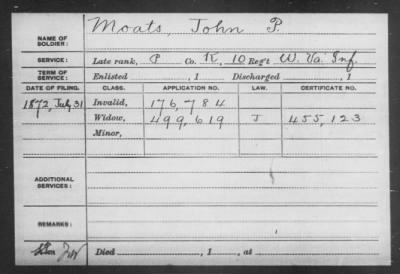 NAME OF SOLDIER: Moats, John P.
SERVICE: Late rank, P Co. K, 10 Reg't W. Va. Inf.
TERM OF SERVICE: Enlisted , 1 Discharged , 1
DATE OF FILING. CLASS. APPLICATION NO. LAW. CERTIFICATE NO.
1872, July 31 Invalid, 176,784
Widow, 499,619 J 455,123
Minor,
ADDITIONAL SERVICES:
REMARKS:
Died , 1 , at